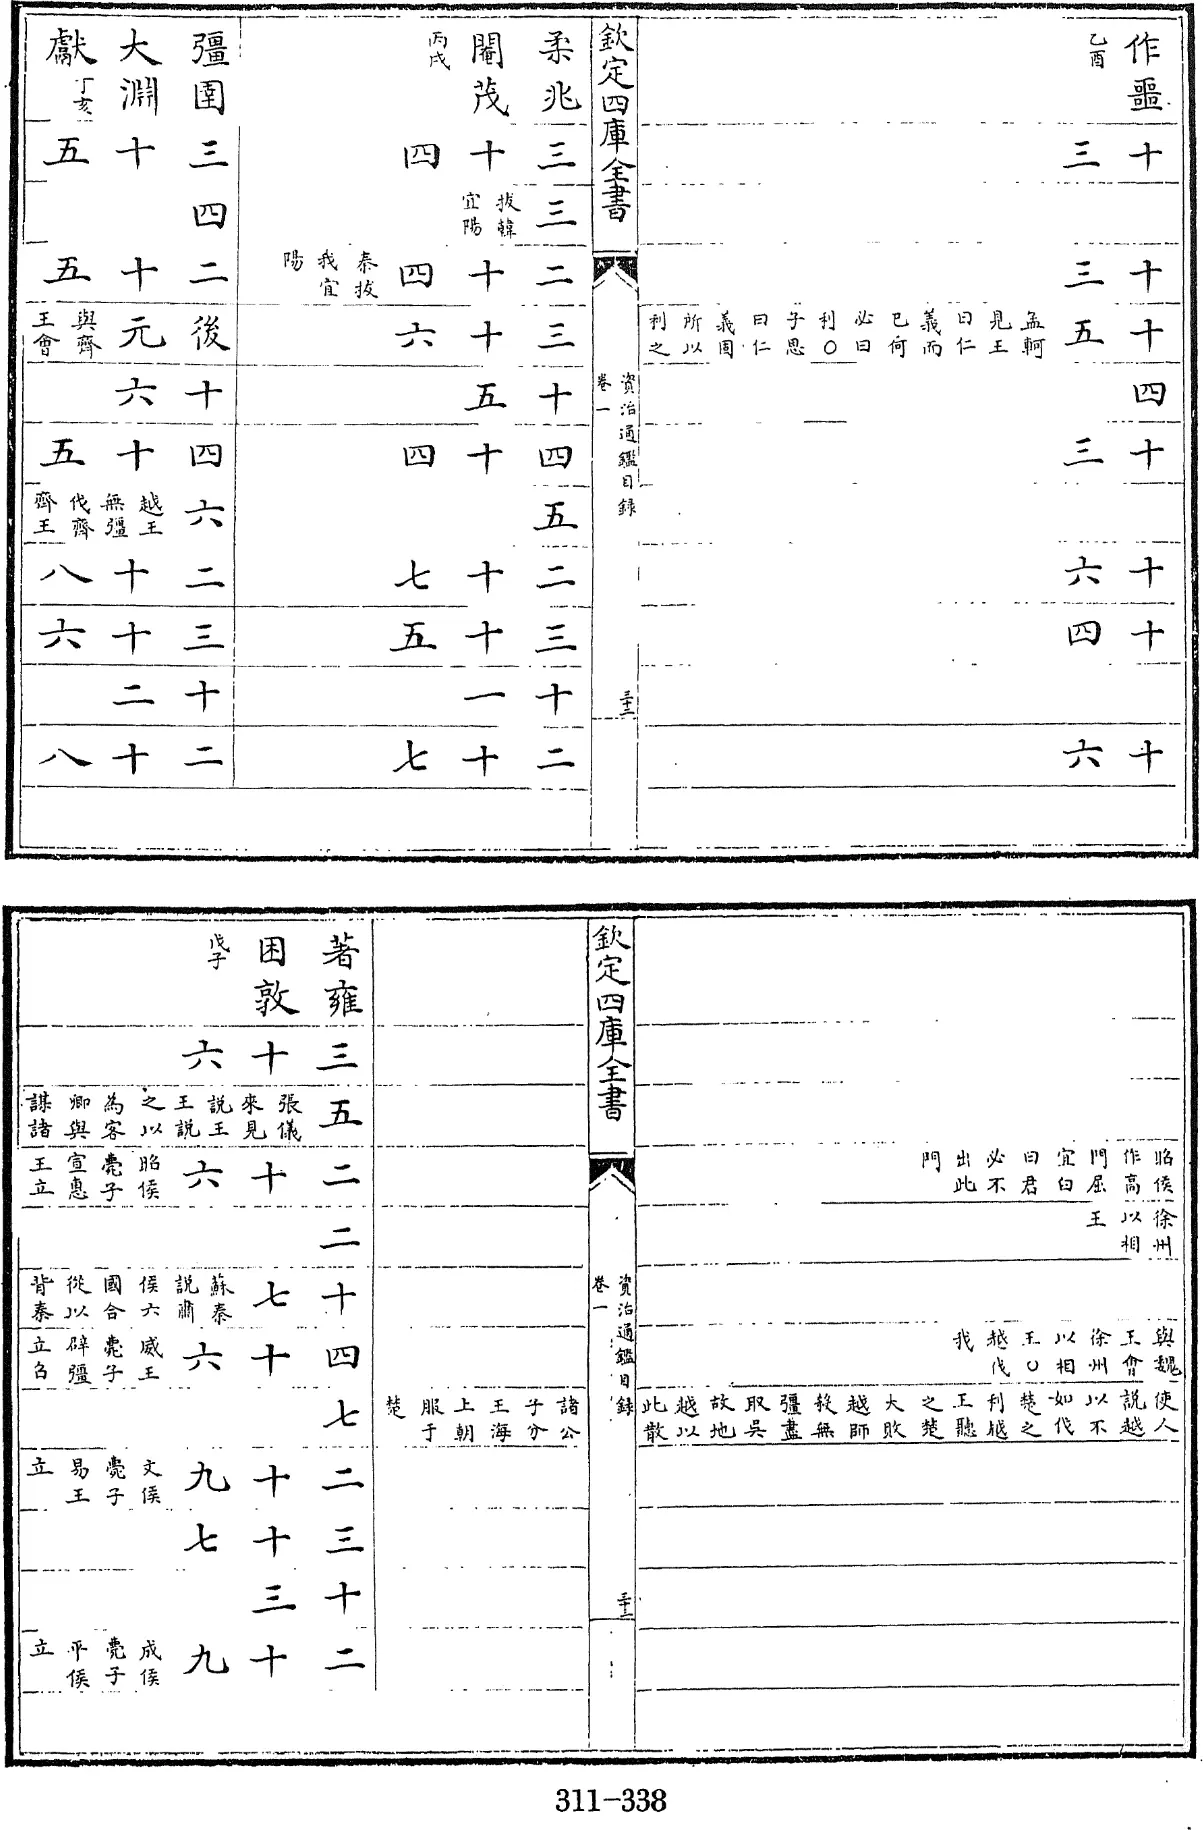 作噩
乙酉
十三
十三
十五
孟軻見王曰仁義而已何必曰利〇子思曰仁義固所以利之
四
十三
十六
十四
十六
欽定四庫全書
資治通鑑目録
卷一
柔兆閹茂
丙戌
三十四
三
拔韓宜陽
二十四
秦拔我宜陽
三十六
十五
四十四
五
二十七
三十五
十一
二十七
彊圉大淵獻
丁亥
三十五
四
二十五
後元
與齊王會
十六
四十五
六
越王無彊伐齊齊王
二十八
三十六
十二
二十八
昭侯作高門屈宜臼曰君必不出此門
徐州以相王
與魏王會徐州以相王〇越伐我
使人說越以不如伐楚之利越王聽之楚大敗越師殺無彊盡取吳故地越以此散
欽定四庫全書
資治通鑑目録
卷一
諸公子分王海上朝服于楚
著雍困敦
戊子
三十六
五
張儀來見說王王說之以為客卿與謀諸
二十六
昭侯薨子宣惠王立
二
十七
蘇秦說肅侯六國合從以背秦
四十六
威王薨子辟彊立
七
二十九
文侯薨子易王立
三十七
十三
二十九
成侯薨子平侯立
311-338